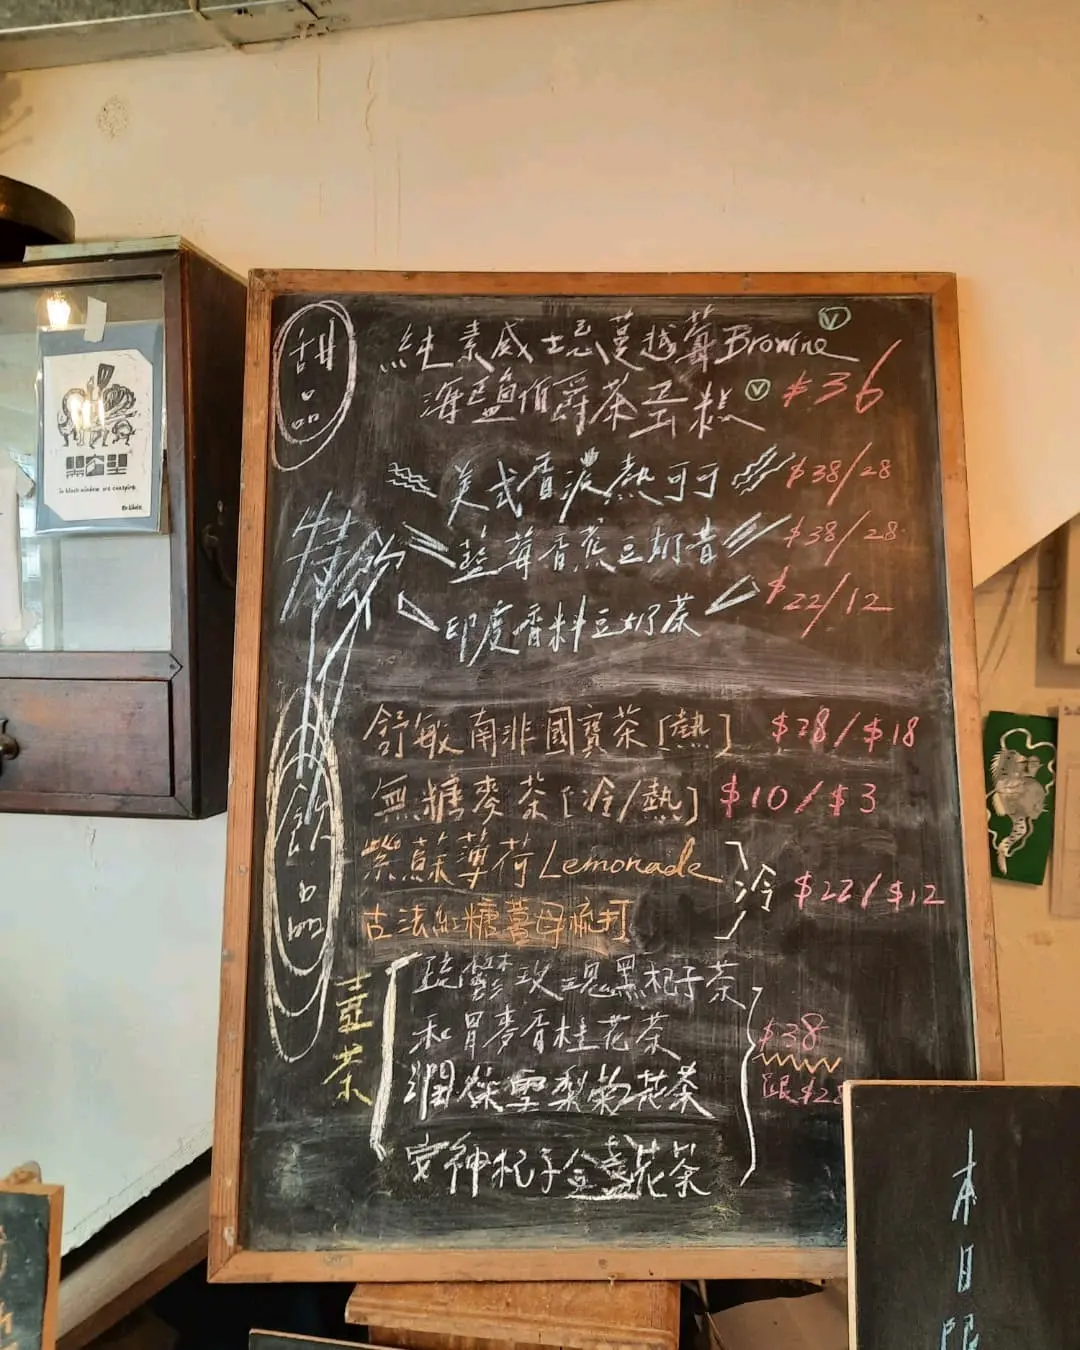 甜品
純素威士忌蔓越莓Browine Ⓥ
海鹽伯爵茶蛋糕 Ⓥ $36
特飲
美式香濃熱可可 $38/28
藍莓香蕉豆奶昔 $38/28
印度香料豆奶茶 $22/12
飲品
舒敏南非國寶茶[熱] $28/$18
無糖麥茶[冷/熱] $10/$3
紫蘇薄荷Lemonade
古法紅糖薑母梳打
冷 $22/$12
壺茶
疏鬱玫瑰黑杞子茶
和胃麥香桂花茶
潤燥雪梨菊花茶
安神杞子金盞花茶
$38
限$28
黑窗里
in black window are conspire.
本日限